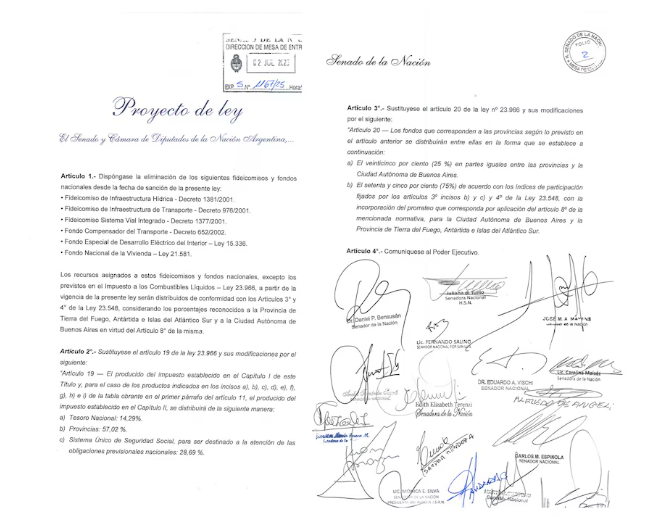 DIRECCIÓN DE MESA DE ENTR
02 JUL 202
EXP. S Nº 1167/25 Hora
Proyecto de ley
El Senado y Cámara de Diputados de la Nación Argentina,...
Artículo 1.- Dispóngase la eliminación de los siguientes fideicomisos y fondos
nacionales desde la fecha de sanción de la presente ley:
• Fideicomiso de Infraestructura Hídrica - Decreto 1381/2001.
• Fideicomiso de Infraestructura de Transporte - Decreto 976/2001.
• Fideicomiso Sistema Vial Integrado - Decreto 1377/2001.
• Fondo Compensador del Transporte - Decreto 652/2002.
• Fondo Especial de Desarrollo Eléctrico del Interior – Ley 15.336.
• Fondo Nacional de la Vivienda – Ley 21.581.
Los recursos asignados a estos fideicomisos y fondos nacionales, excepto los
previstos en el Impuesto a los Combustibles Líquidos – Ley 23.966, a partir de la
vigencia de la presente ley serán distribuidos de conformidad con los Artículos 3° y
4° de la Ley 23.548, considerando los porcentajes reconocidos a la Provincia de
Tierra del Fuego, Antártida e Islas del Atlántico Sur y a la Ciudad Autónoma de
Buenos Aires en virtud del Artículo 8° de la misma.
Artículo 2°.- Sustitúyese el artículo 19 de la ley 23.966 y sus modificaciones por el
siguiente:
"Artículo 19 — El producido del impuesto establecido en el Capítulo I de este
Título y, para el caso de los productos indicados en los incisos a), b), c), d), e), f),
g), h) e i) de la tabla obrante en el primer párrafo del artículo 11, el producido del
impuesto establecido en el Capítulo II, se distribuirá de la siguiente manera:
a) Tesoro Nacional: 14,29%.
b) Provincias: 57,02 %.
c) Sistema Único de Seguridad Social, para ser destinado a la atención de las
obligaciones previsionales nacionales: 28,69 %.
Senado de la Nación
SENADO DE LA NACION
FOLIO
2
Artículo 3°.- Sustitúyese el artículo 20 de la ley nº 23.966 y sus modificaciones
por el siguiente:
"Artículo 20 — Los fondos que corresponden a las provincias según lo previsto en
el artículo anterior se distribuirán entre ellas en la forma que se establece a
continuación:
a) El veinticinco por ciento (25 %) en partes iguales entre las provincias y la
Ciudad Autónoma de Buenos Aires.
b) El setenta y cinco por ciento (75%) de acuerdo con los índices de participación
fijados por los artículos 3° incisos b) y c) y 4° de la Ley 23.548, con la
incorporación del prorrateo que corresponda por aplicación del artículo 8° de la
mencionada normativa, para la Ciudad Autónoma de Buenos Aires y la
Provincia de Tierra del Fuego, Antártida e Islas del Atlántico Sur.
Artículo 4°.- Comuníquese al Poder Ejecutivo.
Senadora Nacional
H.S.N.
Dr. Daniel P. Bensusán
Senador de la Nación
Lic. FERNANDO SALINO
DR. EDUARDO A. VISCHI
SENADOR NACIONAL
Senadora de la Nación
Edith Elizabeth Terenzi
Senadora de la Nación
SANDRA MENDOZA
CARLOS M. ESPINOLA
SENADOR NACIONAL